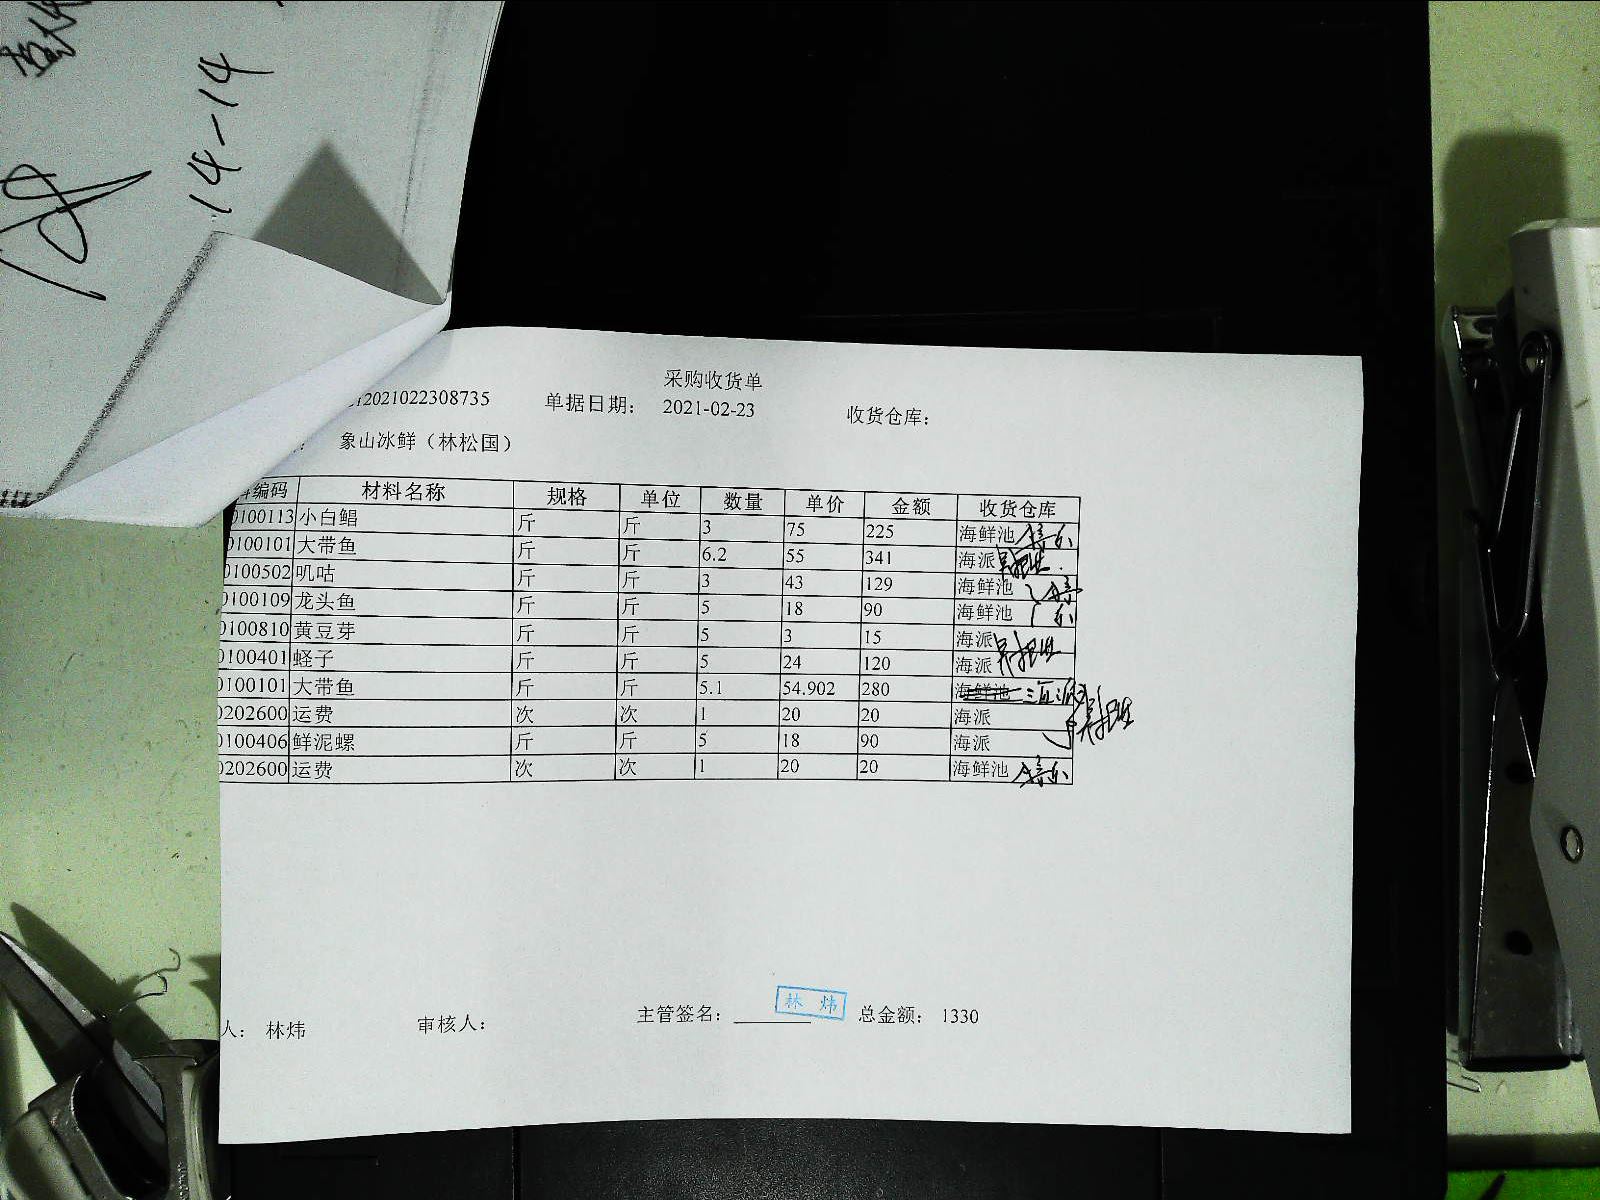 14-14
采购收货单
2021022308735 单据日期： 2021-02-23 收货仓库：
象山冰鲜（林松国）
编码 材料名称 规格 单位 数量 单价 金额 收货仓库
0100113 小白鲳 斤 斤 3 75 225 海鲜池
0100101 大带鱼 斤 斤 6.2 55 341 海派
0100502 叽咕 斤 斤 3 43 129 海鲜池
0100109 龙头鱼 斤 斤 5 18 90 海鲜池
0100810 黄豆芽 斤 斤 5 3 15 海派
0100401 蛏子 斤 斤 5 24 120 海派
0100101 大带鱼 斤 斤 5.1 54.902 280 海鲜池 海派
0202600 运费 次 次 1 20 20 海派
0100406 鲜泥螺 斤 斤 5 18 90 海派
0202600 运费 次 次 1 20 20 海鲜池
人： 林炜 审核人： 主管签名： 林 炜 总金额： 1330